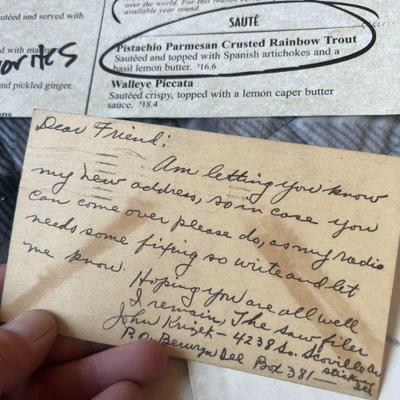 over the world. For this reason
available year round.
SAUTÉ
Pistachio Parmesan Crusted Rainbow Trout
Sautéed and topped with Spanish artichokes and a
basil lemon butter. $16.6
Walleye Piccata
Sautéed crispy, topped with a lemon caper butter
sauce. $18.4
utéed and served with
d with
orites
nd pickled ginger.
Dear Friend:
Am letting you know
my new address, so in case you
can come over please do, as my radio
needs some fixing so write and let
me know.
Hoping you are all well
I remain, The saw filer
John - 4238 So. Scoville Av
P.O. Berwyn Ill Box 381 - Stickney
Ill